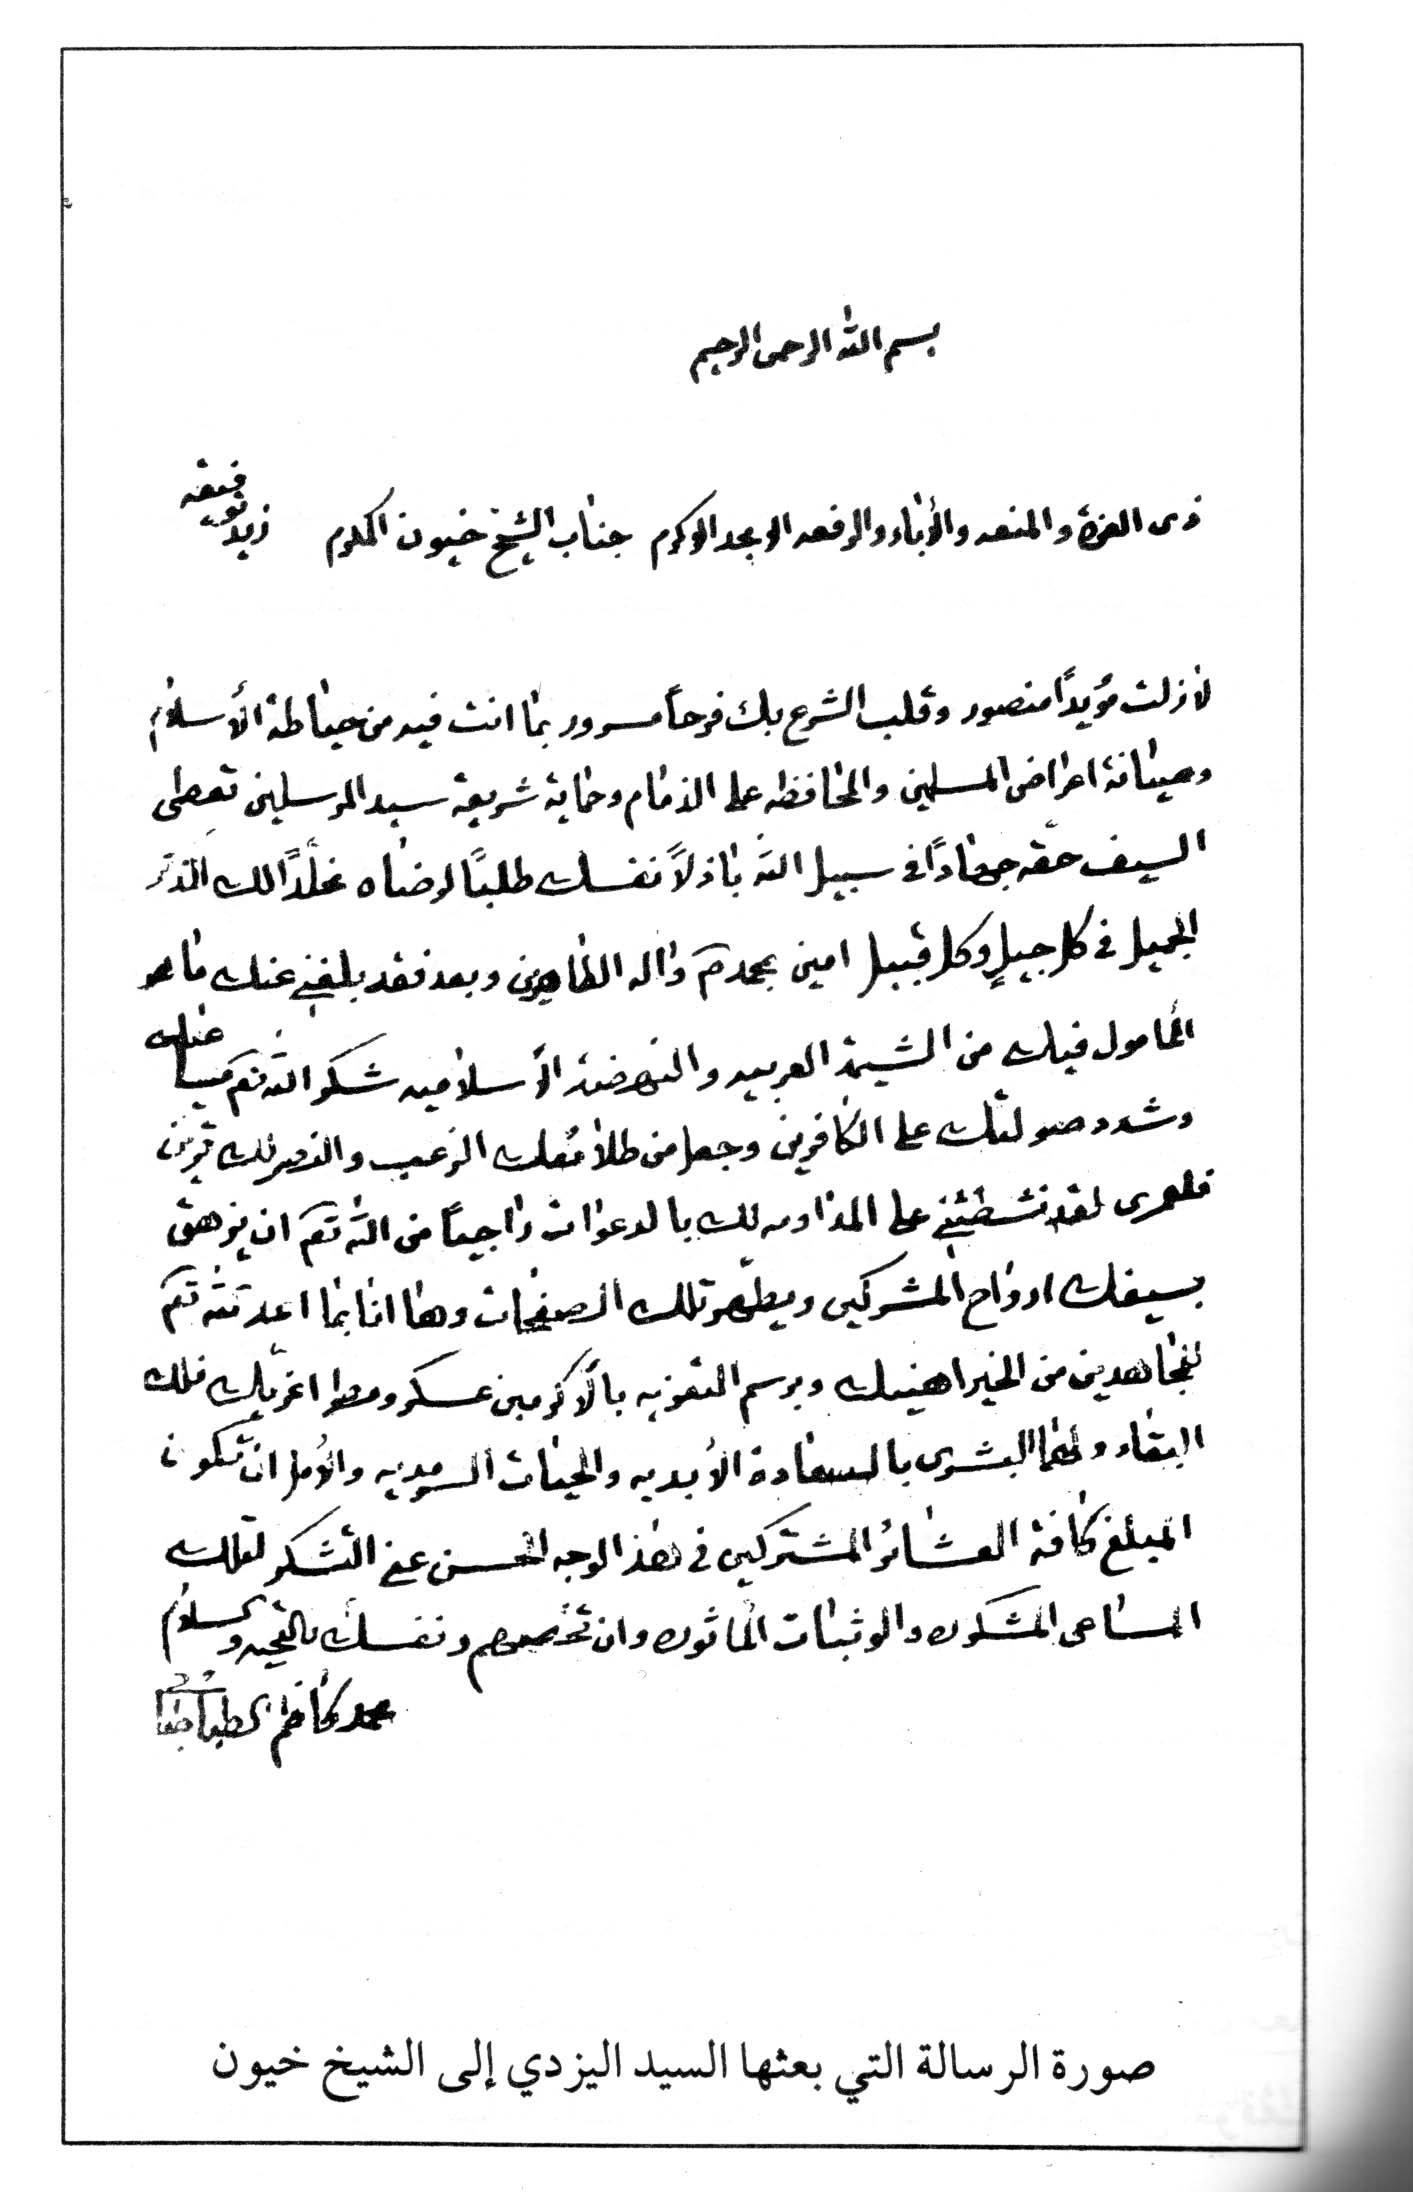 بسم الله الرحمن الرحيم
ذى العزة والمنعه والأباء والرفعه الامجد الاكرم جناب الشيخ خيون المكرم زيد توفيقه
لازلت مؤيداً منصور وقلب الشرع بك فرحاً مسرور بما انت فيه من حياطة الأسلام
وصيانة اعراض المسلمين والمحافظه على الذمام وحماية شريعة سيد المرسلين تعطى
السيف حقه جهاداً فى سبيل الله باذلاً نفسك طلبًا لرضاه مخلّداً لك الذكر
الجميل فى كل جيلٍ وكل قبيل امين بمحمد ص واله الطاهرين وبعد فقد بلغنى عنك ما هو
المأمول فيك من الشيمة العربيه والنهضة الأسلاميه شكر الله تع مساعيك
وشدد صولتك على الكافرين وجعل من طلائعك الرعب والنصر لك قرين
فلعمرى لقد نشطتنى على المداومه لك بالدعوات راجياً من الله تع ان يزهق
بسيفك ارواح المشركين ويطهّر تلك الصفحات وها انا بما اعد الله تع
للمجاهدين من الخير اهنيك وبرسم التعزيه بالأكرمين عسكر ومطر اعزيك فلك
البقاء ولهما البشرى بالسعادة الأبديه والحيات السرمديه والأمل ان تكون
المبلغ كافة العشائر المشتركين فى هذا الوجه الحسن عنى التشكر لتلك
المساعى المشكوره والوثبات المأثوره وان تخصهم ونفسك بالتحيه والسلام
محمد كاظم الطباطبائى
صورة الرسالة التي بعثها السيد اليزدي إلى الشيخ خيون